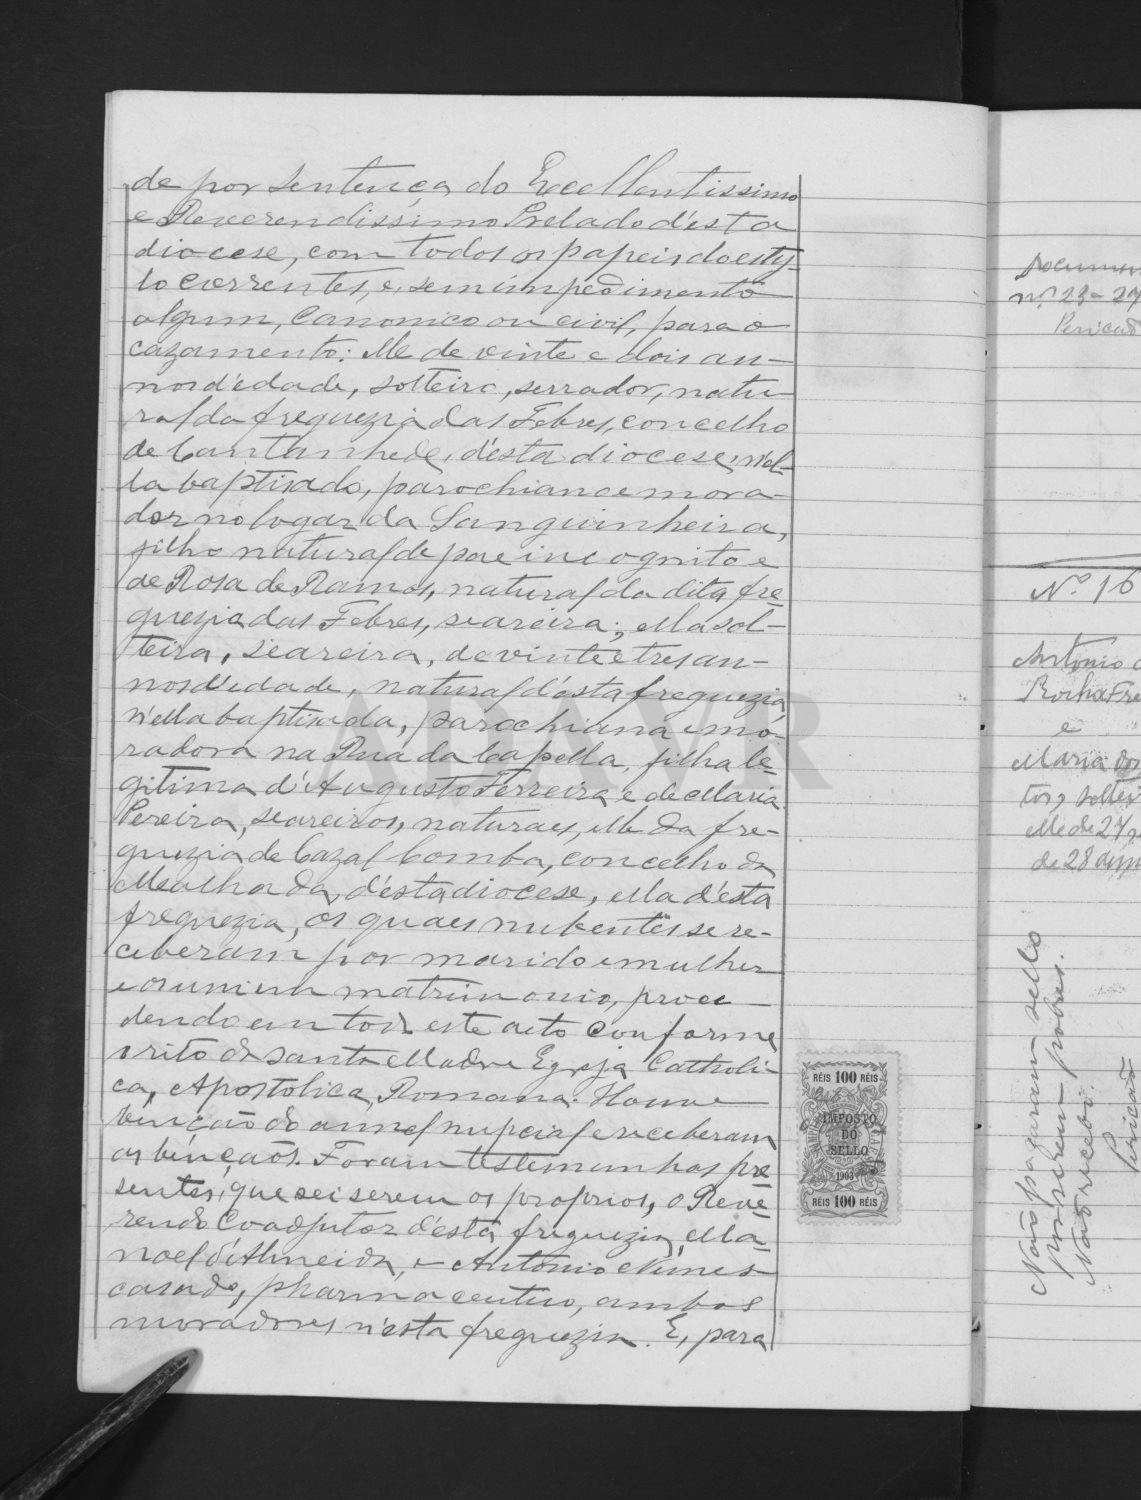 de por sentença do Excellentissimo
e Reverendissimo Prelado d'esta
diocese, com todos os papeis do esty-
lo correntes, e sem impedimento
algum, canonico ou civil, para o
cazamento: elle de vinte e dois an-
nos d'edade, solteiro, serrador, natu-
ral da freguezia das Febres, concelho
de Cantanhede, d'esta diocese, n'el-
la baptisado, parochiano e mora-
dor no logar da Sanguinheira,
filho natural de pae incognito e
de Rosa de Ramos, natural da dita fre-
guezia das Febres, seareira; ella sol-
teira, seareira, de vinte e tres an-
nos d'edade, natural d'esta freguezia
n'ella baptisada, parochiana e mo-
radora na Rua da Capella, filha le-
gitima d'Augusto Ferreira e de Maria
Pereira, seareiros, naturaes, elle da fre-
guezia de Cazal Comba, concelho da
Mealhada, d'esta diocese, ella d'esta
freguezia, os quaes nubentes se re-
ceberam por marido e mulher
e os uni em matrimonio, proce-
dendo em todo este acto conforme
o rito da Santa Madre Egreja Catholi-
ca, Apostolica, Romana. Houve
benção do annel nupcial e receberam
as bençãos. Foram testemunhas pre-
sentes, que sei serem os proprios, o Reve-
rendo Coadjutor d'esta freguezia, Ma-
noel d'Almeida, e Antonio Nunes
casado, pharmaceutico, ambos
moradores n'esta freguezia. E, para
RÉIS 100 RÉIS
IMPOSTO
DO
SELLO
1903
RÉIS 100 RÉIS
ADAVR
Documen
nos 23-27
Nº 16
Antonio d
Rocha Fre
e
Maria dos
tos, soltei
elle de 27
de 28 annos
Não pagaram sello
por serem pobres.
Não recebi.